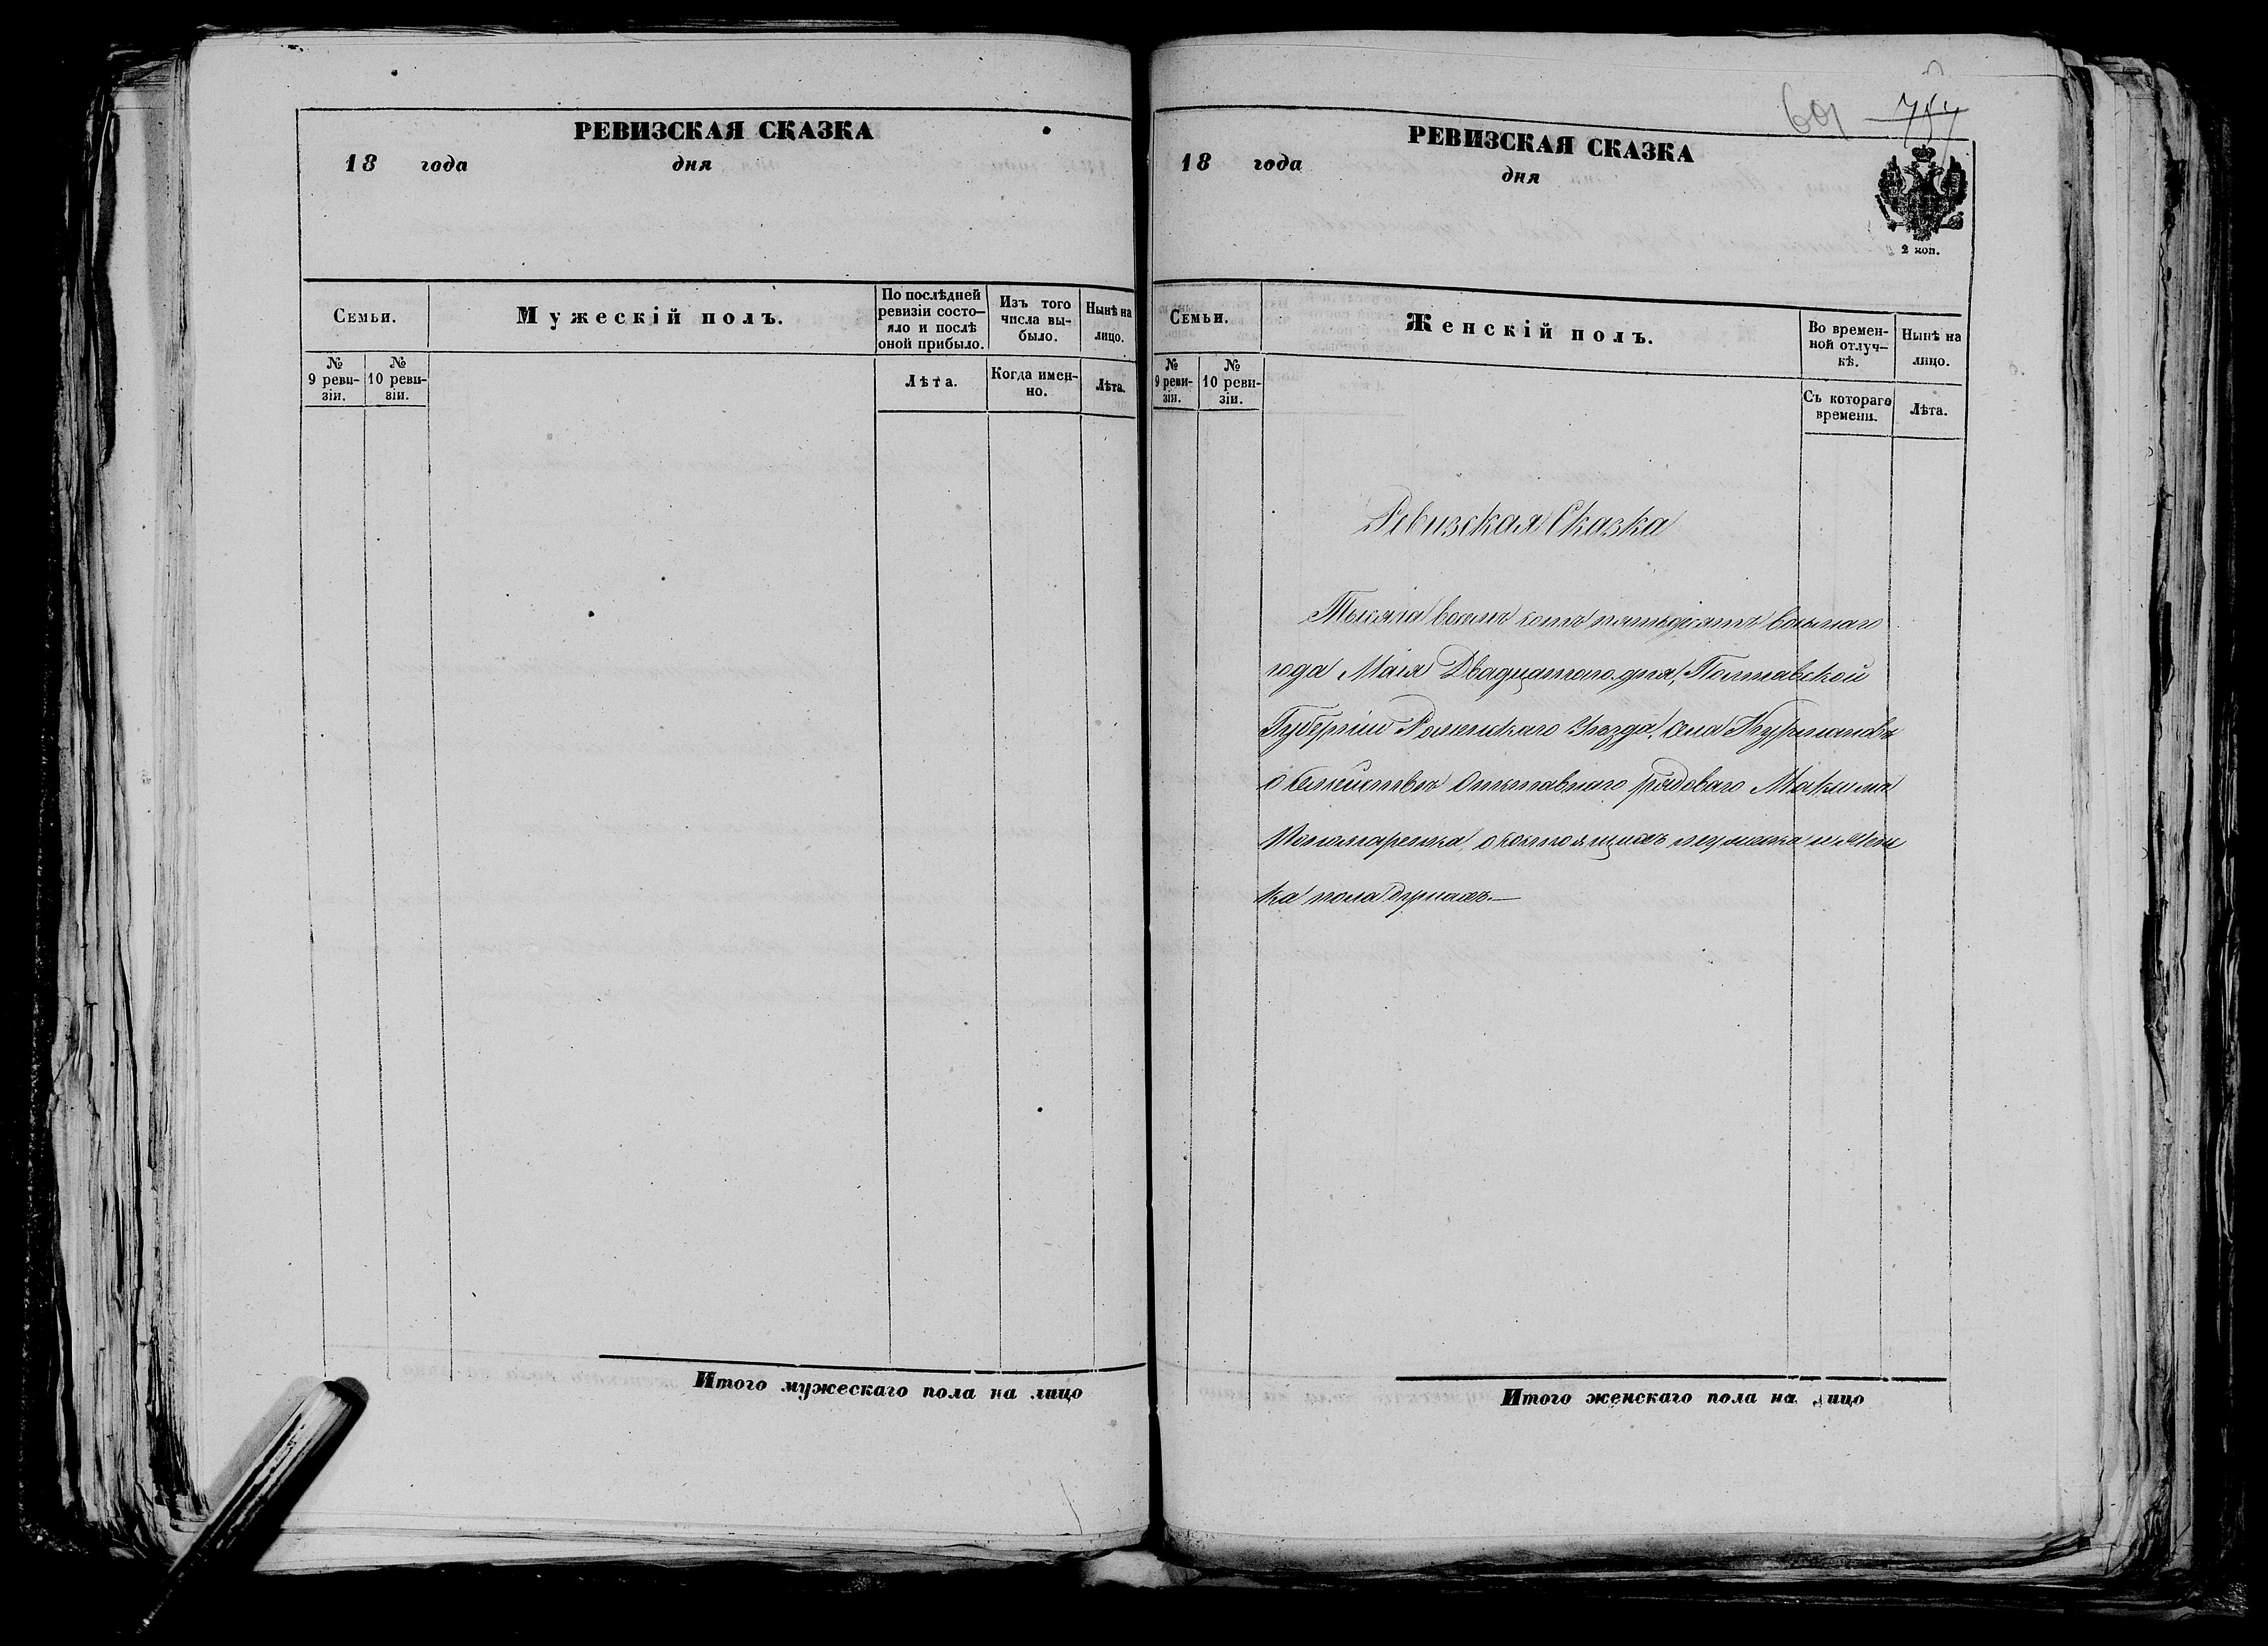 РЕВИЗСКАЯ СКАЗКА
18 года дня
Семьи.
Мужескій полъ.
По послѣдней
ревизіи состо-
яло и послѣ
оной прибыло.
Изъ того
числа вы-
было.
Нынѣ на
лицо.
№
9 реви-
зіи.
№
10 реви-
зіи.
Лѣта.
Когда имен-
но.
Лѣта.
Итого мужескаго пола на лицо
601 757
РЕВИЗСКАЯ СКАЗКА
18 года дня
2 коп.
Семьи.
Женскій полъ.
Во времен-
ной отлуч-
кѣ.
Нынѣ на
лицо.
№
9 реви-
зіи.
№
10 реви-
зіи.
Съ котораго
времени.
Лѣта.
Ревизская Сказка
Тысяча восемъ сотъ пятьдесятъ восьмаго
года Маія Двадцатого дня, Полтавской
Губерніи Роменскаго Уезда, села Курмановъ
о семействѣ Отставнаго рядоваго Максима
Пономаренка, о состоящихъ мужеска и жен
ска пола душахъ.—
Итого женскаго пола на лицо